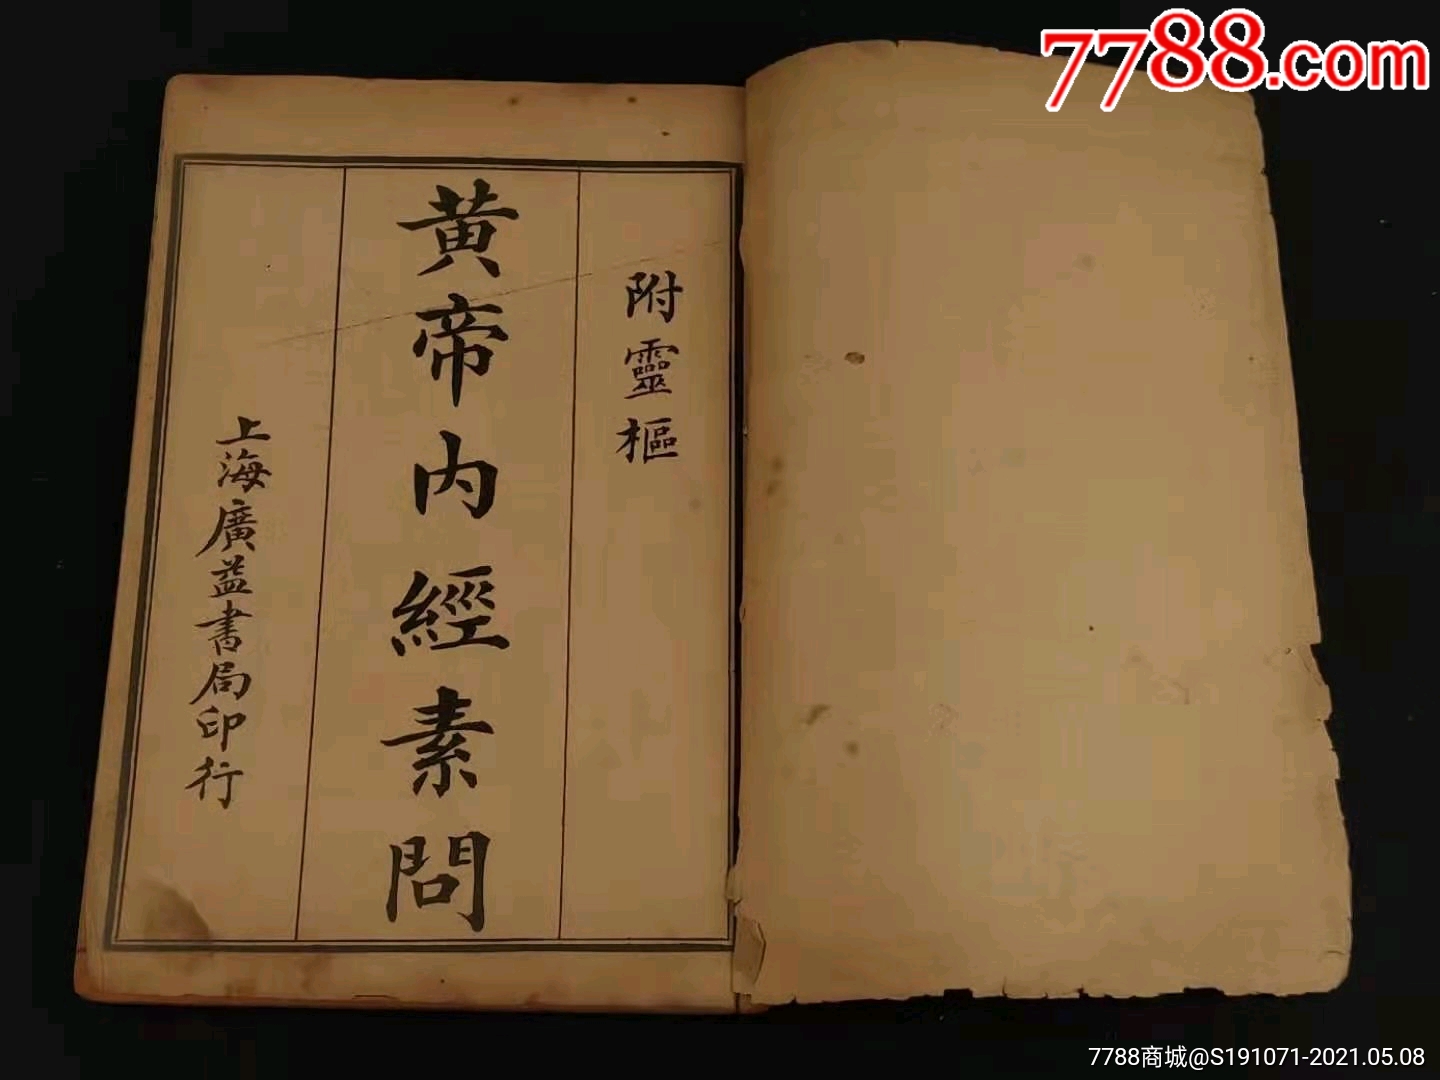 7788.com
附靈樞
黃帝內經素問
上海廣益書局印行
7788商城@S191071-2021.05.08